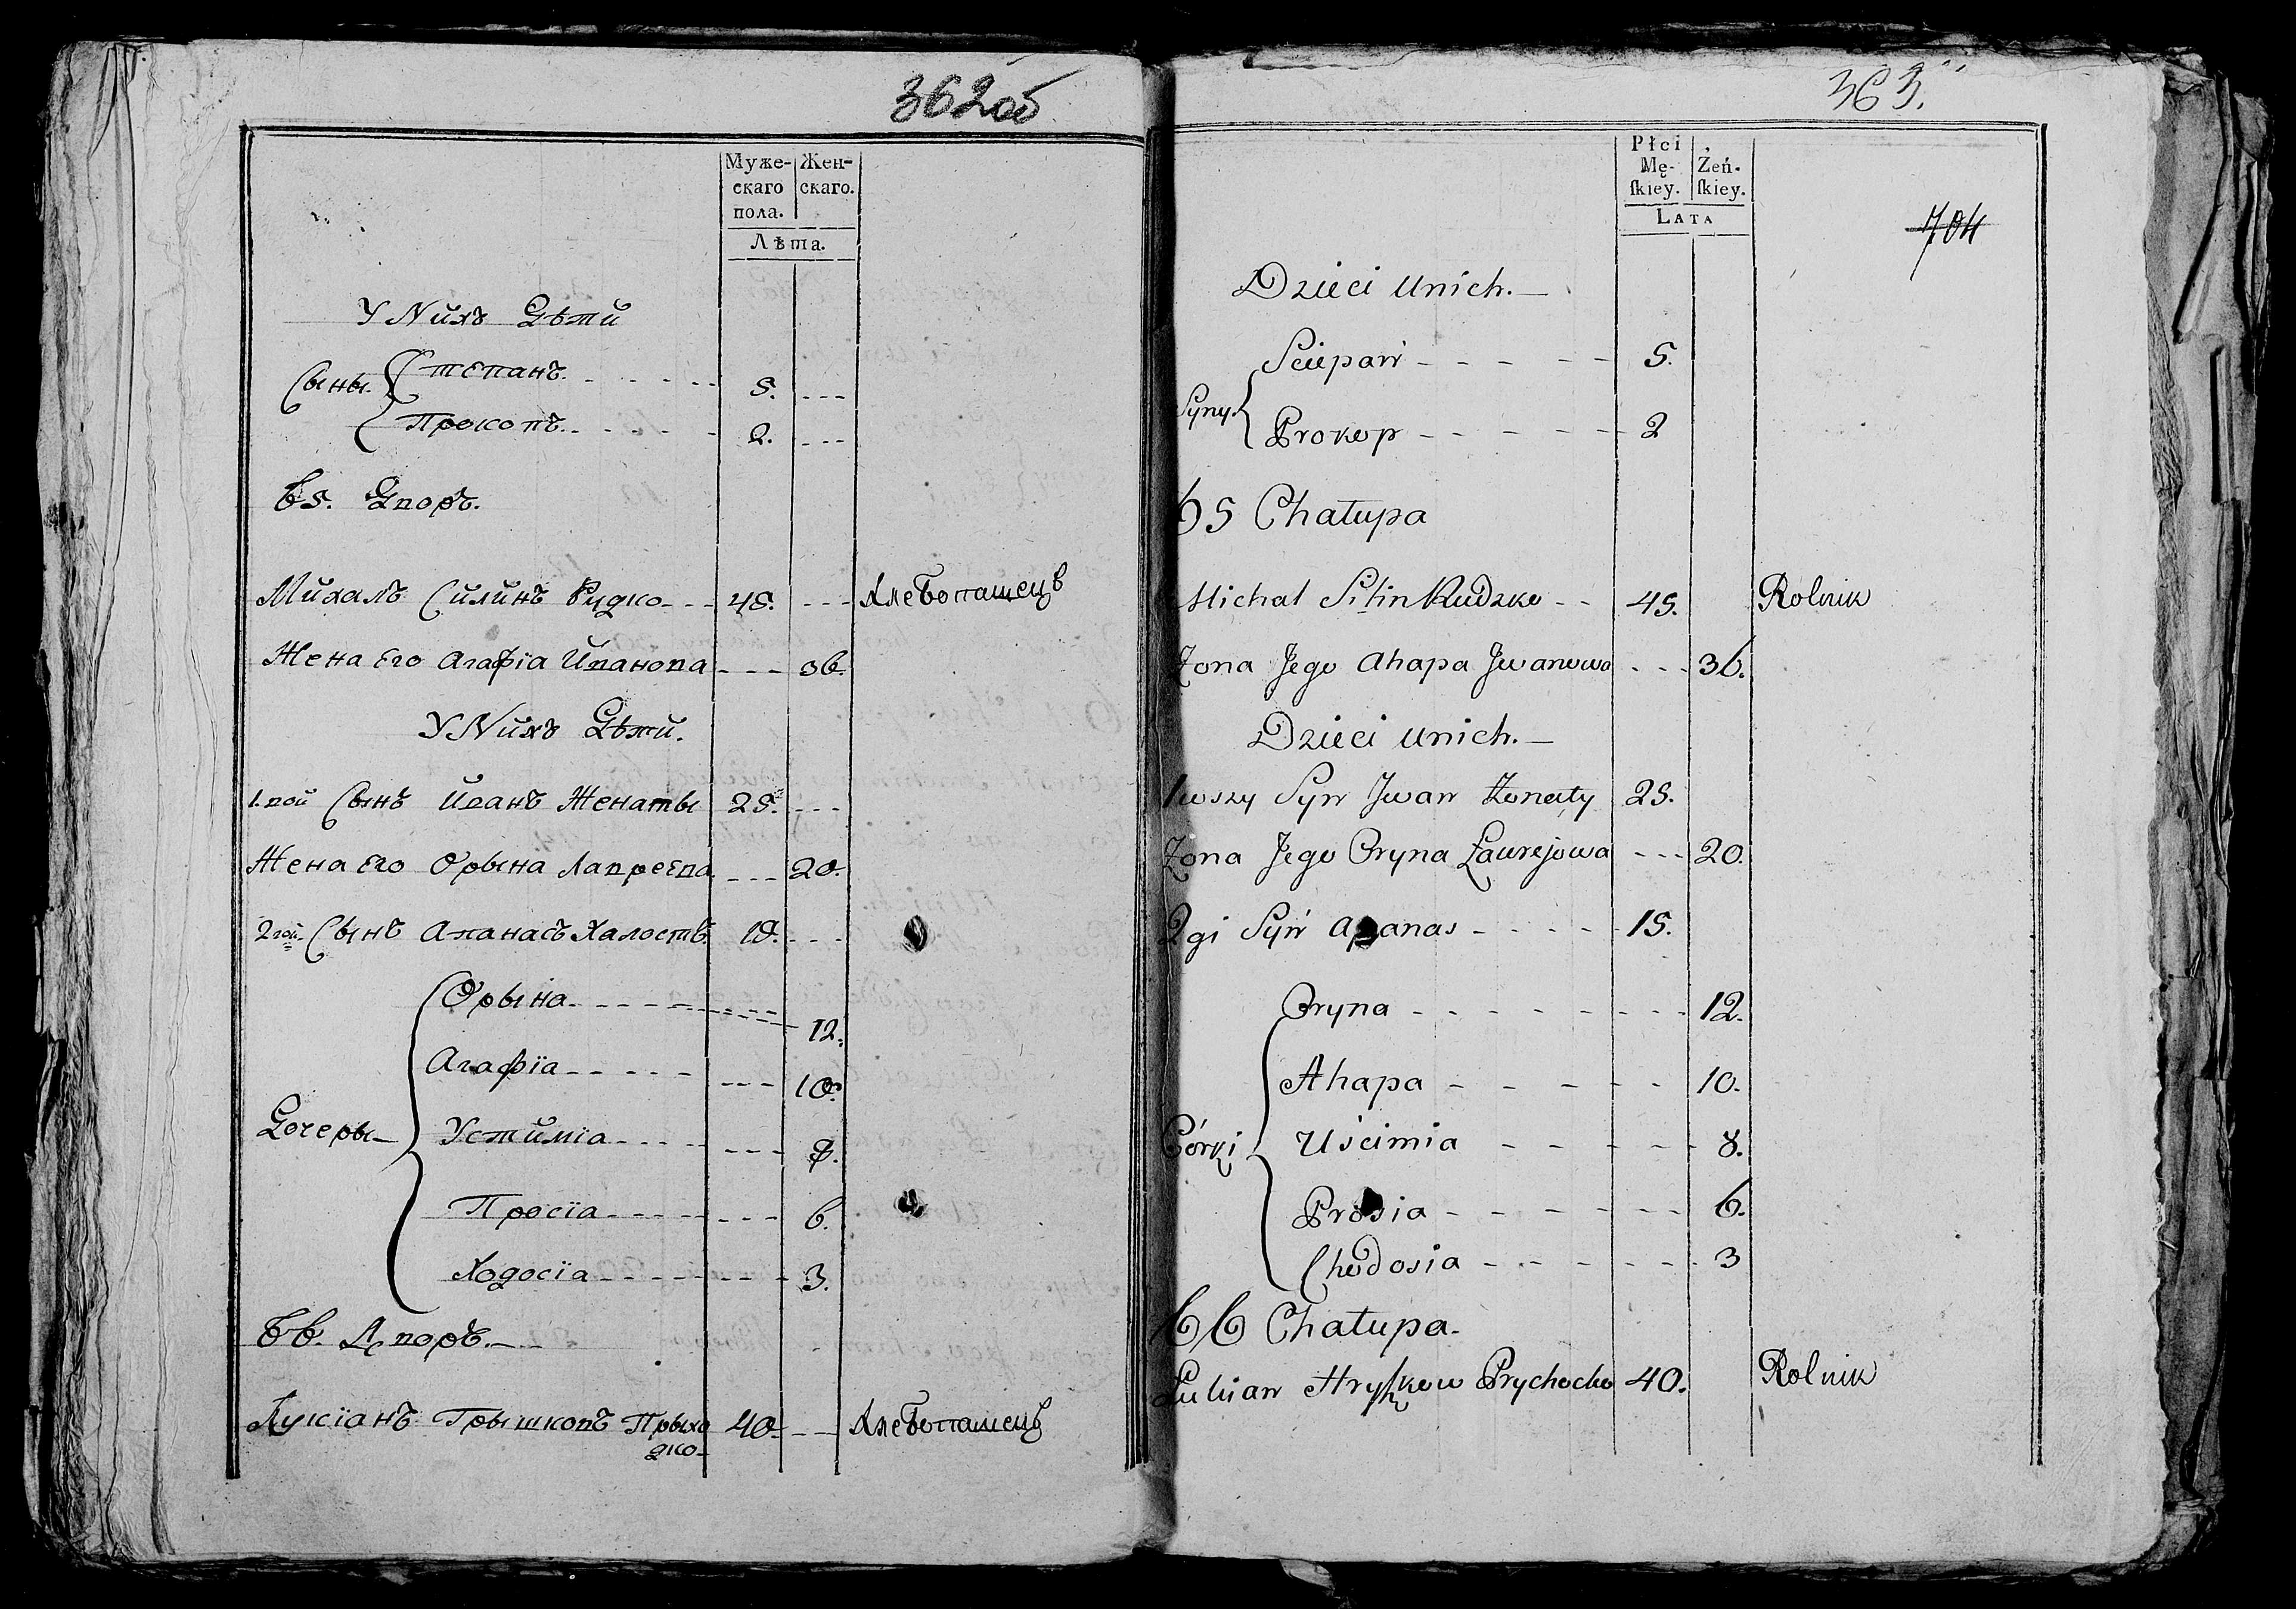 362об
Муже- Жен-
скаго скаго.
пола.
Лѣта.
У Нихъ Дѣти
Сыны. Степанъ. 5.
Прокопъ. 2.
65. Дворъ.
Михалъ Силинъ Рудко 45. Хлебопашецъ
Жена Его Агафїа Иванова 36.
У Нихъ Дѣти.
1.вой Сынъ Иванъ Женаты 25.
Жена Его Орына Лавреева 20.
2гой. Сынъ Апанасъ Халостъ. 15.
Орына 12.
Агафїа 10.
Дочеры Устимїа 8.
Просїа 6.
Ходосїа 3.
66. Дворъ.
Лукїанъ Грышковъ Прыхо 40 Хлебопашецъ
дко
363.
Płci
Mę- Żeń-
ſkiey. ſkiey.
Lata
704
Dzieci Unich.
Sciepan 5.
Syny. Prokop 2
65 Chałupa
Michał Silin Rudzko 45. Rolnik
Żona Jego Ahapa Jwanowa 36.
Dzieci Unich.
1wszy Syn Jwan Żonaty 25.
Żona Jego Oryna Ławrejowa 20.
2gi Syn Apanas 15.
Oryna 12.
Ahapa 10.
Córki Uścimia 8.
Prosia 6.
Chodosia 3
66 Chałupa.
Łukian Hryszkow Prychodko 40. Rolnik